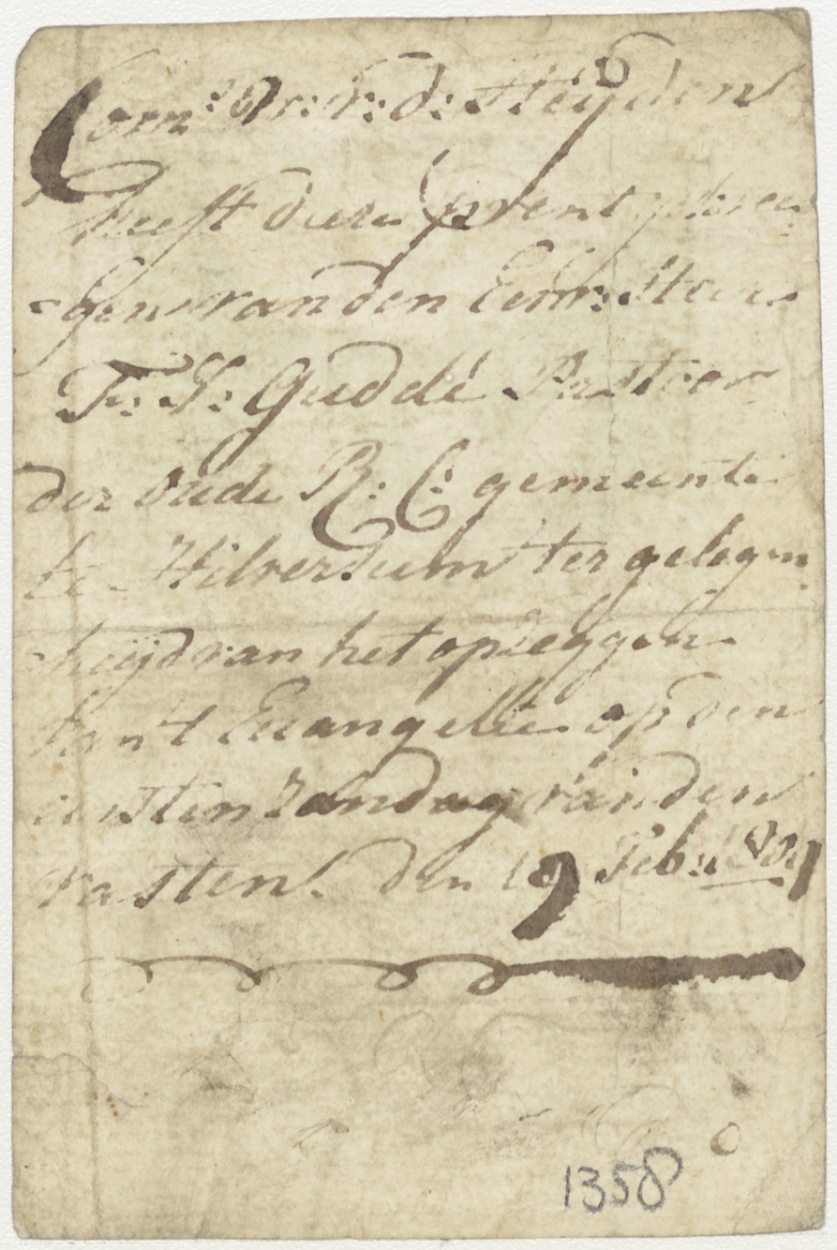 Corn:s Dr: v: d: Heijden
heeft deese prent gekree:
=gen van den Eerw: Heer
F: J: Guddé Pastoor
der oude R: C: gemeente
te Hilversum ter gelegen
=heijd van het opzeggen
van't Euangelie op den
eersten zondag van den
vasten. den 19 Feb:
1358